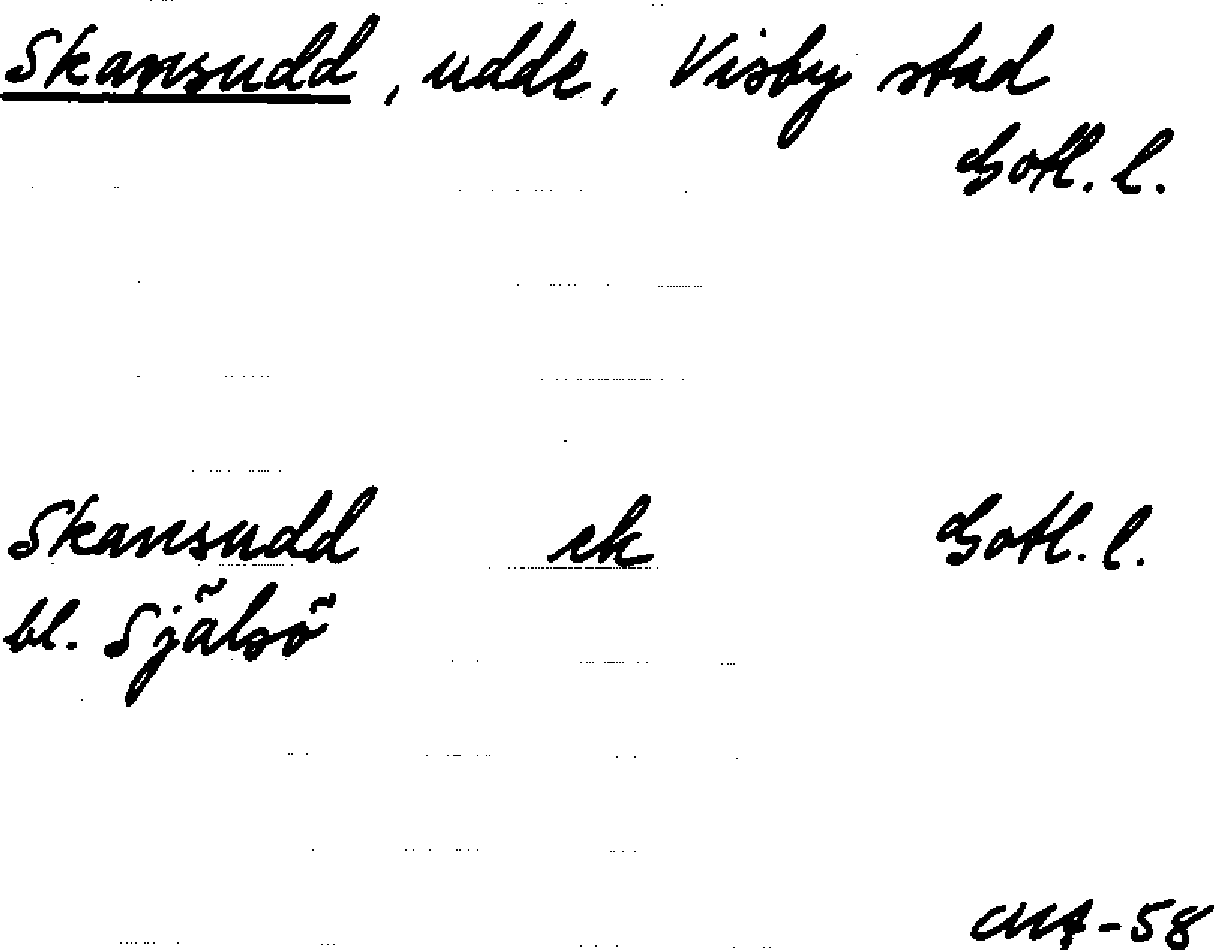 Skansudd, udde, Visby stad
Gotl. l.
Skansudd ek Gotl. l.
bl. Själsö
MA-58